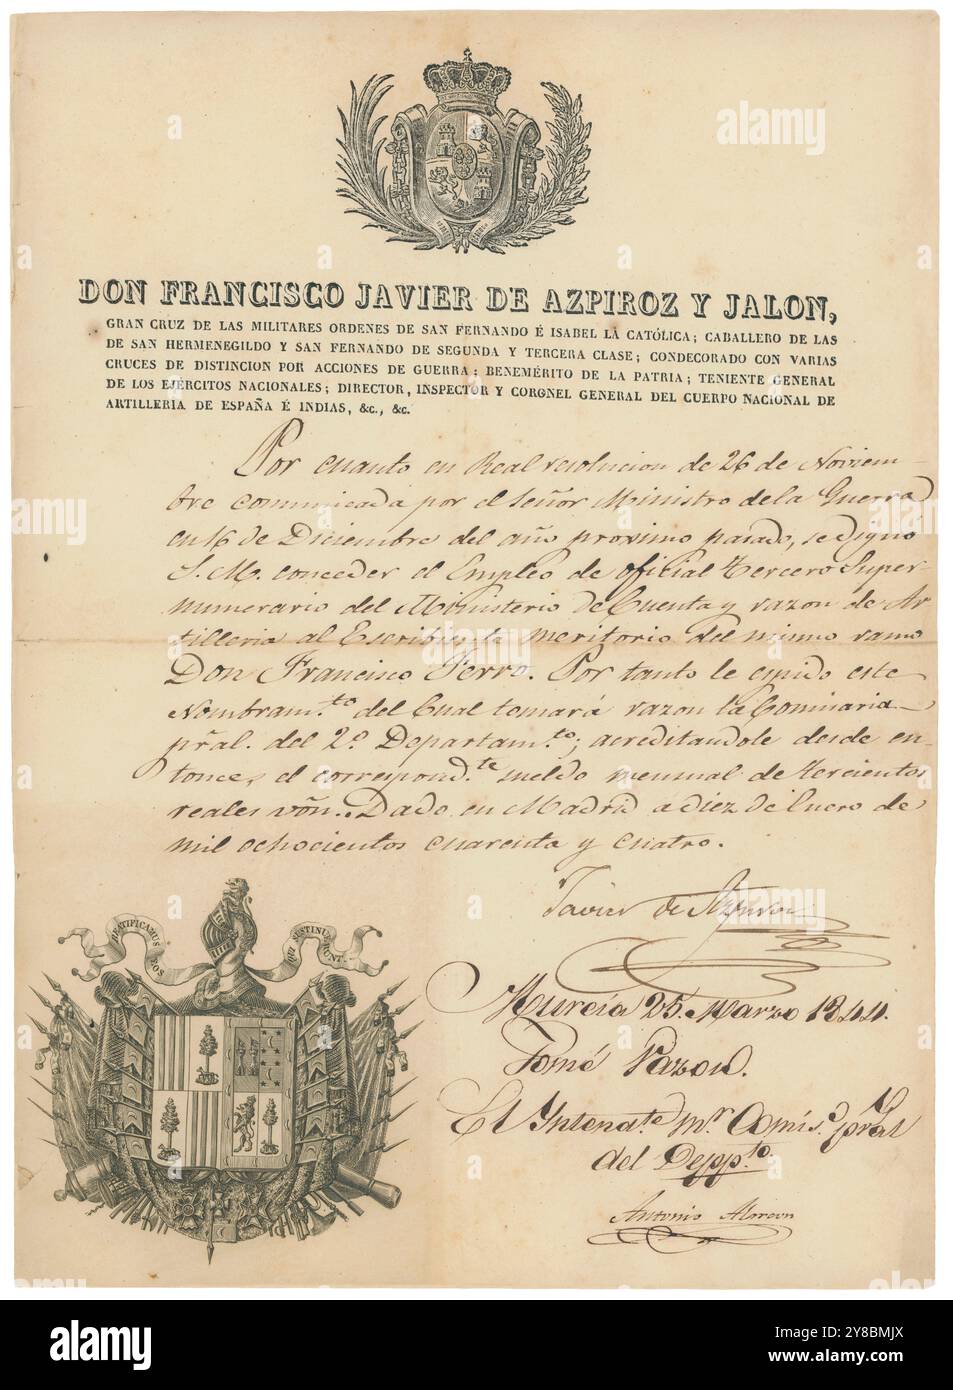 DON FRANCISCO JAVIER DE AZPIROZ Y JALON,
GRAN CRUZ DE LAS MILITARES ORDENES DE SAN FERNANDO É ISABEL LA CATÓLICA; CABALLERO DE LAS
DE SAN HERMENEGILDO Y SAN FERNANDO DE SEGUNDA Y TERCERA CLASE; CONDECORADO CON VARIAS
CRUCES DE DISTINCION POR ACCIONES DE GUERRA; BENEMÉRITO DE LA PATRIA; TENIENTE GENERAL
DE LOS EJÉRCITOS NACIONALES; DIRECTOR, INSPECTOR Y CORONEL GENERAL DEL CUERPO NACIONAL DE
ARTILLERIA DE ESPAÑA É INDIAS, &c., &c.
Por cuanto en Real resolucion de 26 de Noviem-
bre comunicada por el Señor Ministro de la Guerra
en 16 de Diciembre del año proximo pasado, se dignó
S. M. conceder el Empleo de oficial Tercero Super
numerario del Ministerio de Cuenta y razon de Ar
tilleria al Escribiente meritorio del mismo ramo
Don Francisco Ferro. Por tanto le espido este
Nombram.to del Cual tomará razon la Comisaria
prãl. del 2.º Departam.to; acreditandole desde en-
tonces el correspond.te sueldo mensual de trescientos
reales von. Dado en Madrid a diez de Enero de
mil ochocientos cuarenta y cuatro.
Javier de Azpiroz
BEATIFICAMUS EOS QUI SUSTINUERUNT
Murcia 25. Marzo 1844.
Tomé Razon.
El Intend.te M.r Comis.o prãl
del Depp.to
Antonio Alarcon
a
alamy
alamy
Image ID: Y8BMJX
www.alamy.com